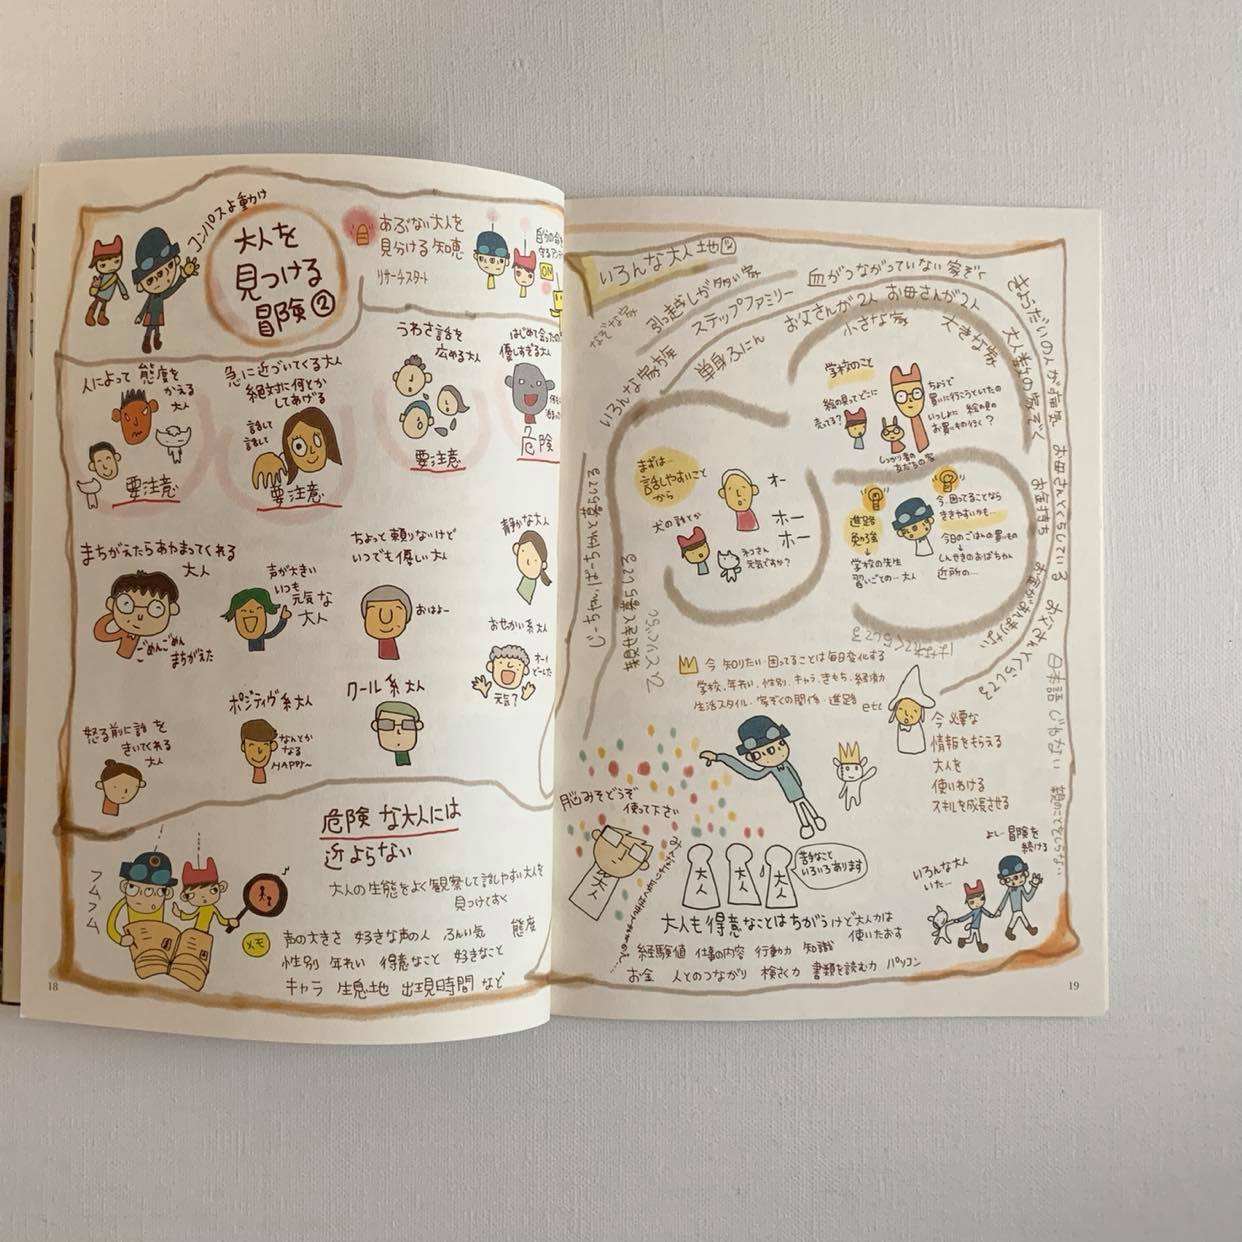 コンパスよ動け
大人を
見つける
冒険②
あぶない大人を
見分ける知恵
リサーチスタート
自分の命を
守るアンテ
ON
人によって態度を
かえる
大人
要注意
急に近づいてくる大人
絶対に何とか
してあげる
話して
話して
要注意
うわさ話を
広める大人
要注意
はじめて会ったの
優しすぎる大人
危険
まちがえたらあやまってくれる
大人
ごめんごめん
まちがえた
声が大きい
いつも
元気な
大人
ちょっと頼りないけど
いつでも優しい大人
おはよー
静かな大人
おせっかい系大人
オー!
どーした
元気?
怒る前に話を
きいてくれる
大人
ポジティヴ系大人
なんとか
なる
HAPPY〜
クール系大人
危険な大人には
近よらない
大人の生態をよく観察して話しやすい大人を
見つけておく
フムフム
メモ
声の大きさ 好きな声の人 ふんい気 態度
性別 年れい 得意なこと 好きなこと
キャラ 生息地 出現時間 など
18
いろんな大人地図
なぞな家
引っ越ししが多い家
ステップファミリー
血がつながっていない家ぞく
お父さんが2人 お母さんが2人
小さな家
大きな家
きょうだいの人が
大人数の家ぞく
いろんな家方産
単身ふにん
お母さんとくらしている
お金持ち
お父さんとくらしてる
お金があんまりない
日本語じゃない
親のことをしらない
じーちゃんばーちゃんと暮らしてる
はなれてくらしてる
学校のこと
絵の具ってどこに
売ってる?
ちょうど
買いに行こうとしていたの
いっしょに絵の具の
お買いもの行く?
しっかり者の
友だちの家
まずは
話しやすいこと
から
犬の話とか
オー
ホー
ホー
ネコさん
元気ですか?
進路
勉強
↓
学校の先生
習いごとの…大人
今、困ってることなら
ききやすいかも…
今日のごはんの買いもの
↓
しんせきのおばちゃん
近所の…
今 知りたい・困ってることは毎日変化する
学校、年れい、性別、キャラ、きもち、経済力
生活スタイル・家ぞくの関係・進路 etc
今必要な
情報をもらえる
大人を
使いわける
スキルを成長させる
脳みそどうぞ
使って下さい
大人
大人
大人
大人
苦手なこと
いろいろあります
大人も得意なことはちがうけど大人力は
使いたおす
経験値 仕事の内容 行動力 知識
お金 人とのつながり 検さく力 書類を読む力 パソコン
よし冒険を
続ける
いろんな大人
いた…
19